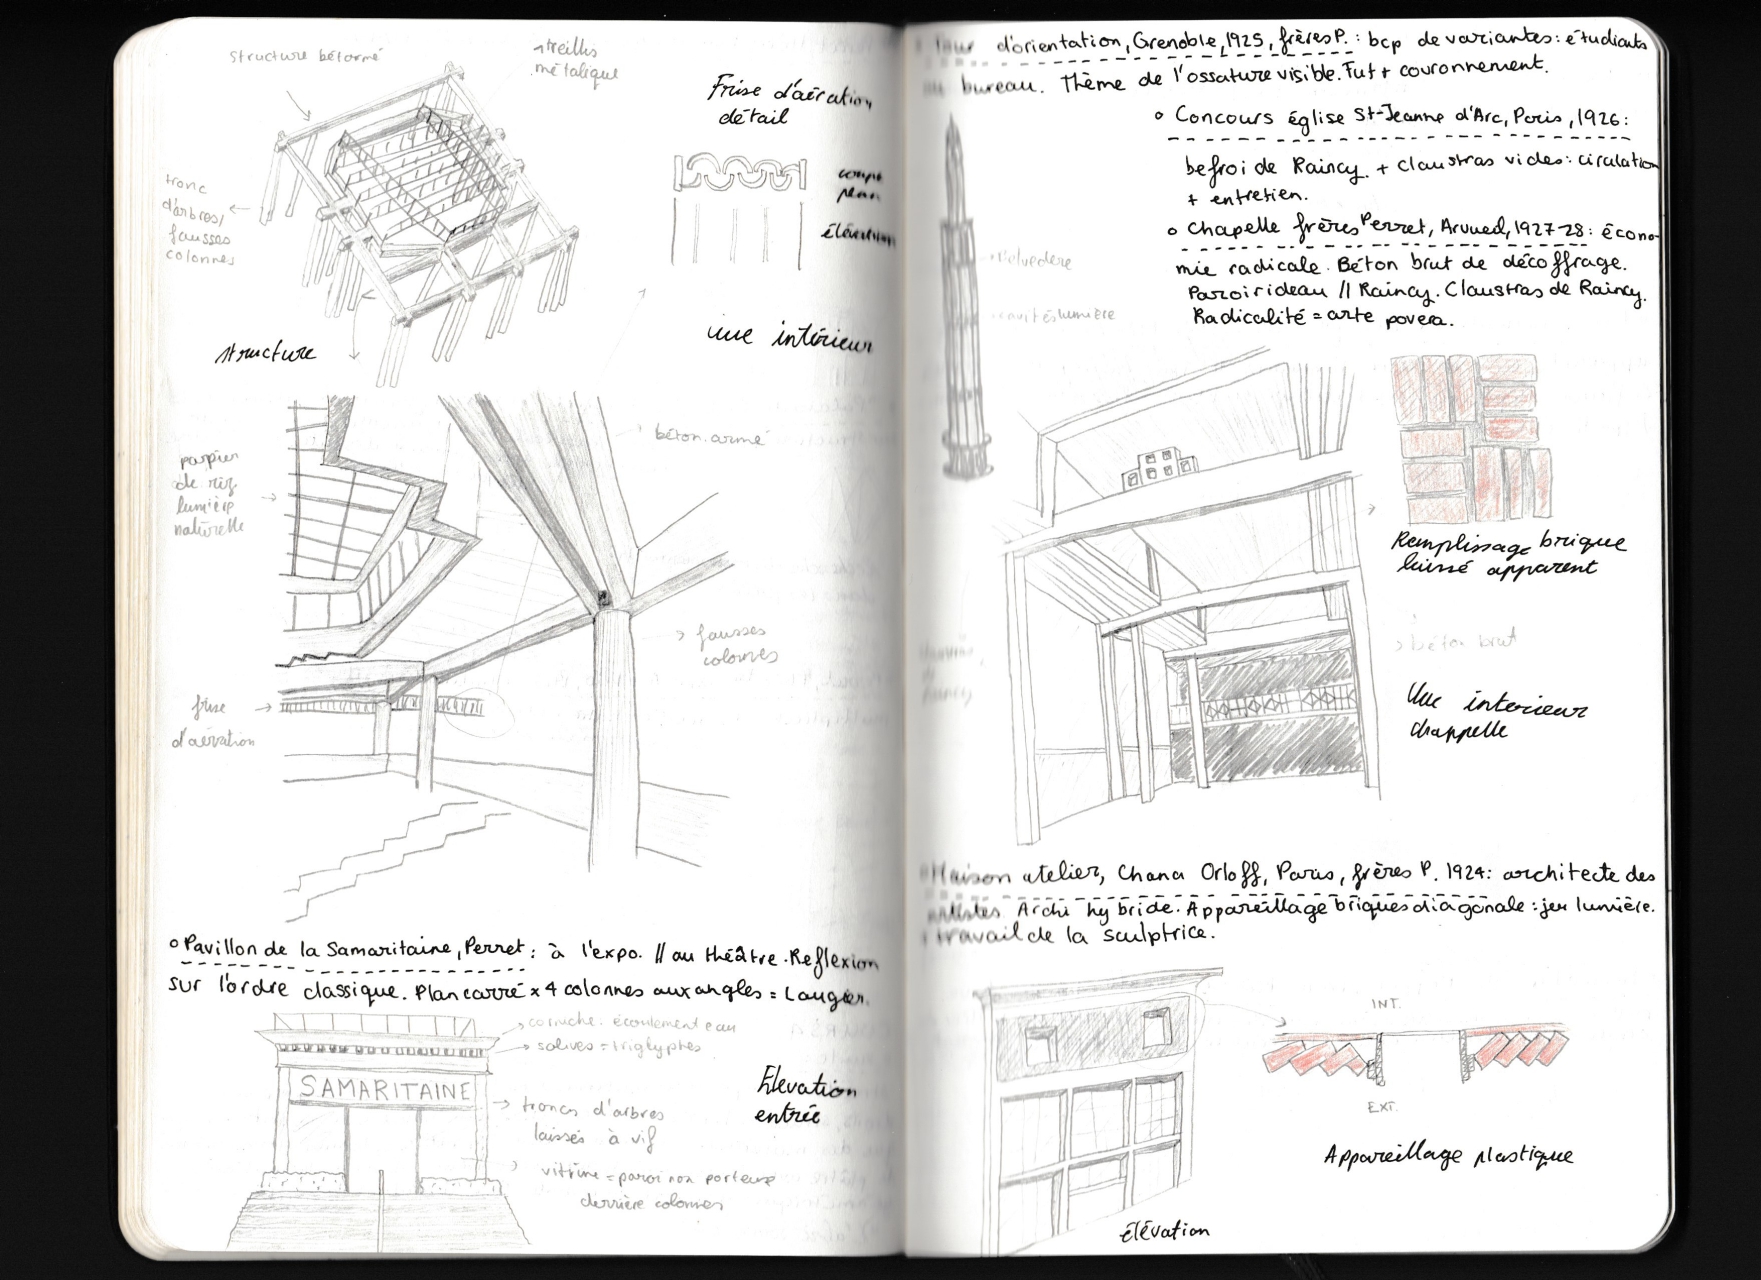 structure béton armé
treillis
métalique
Frise d'aération
détail
coupe
plan
élévation
tronc
d'arbres/
fausses
colonnes
structure
vue intérieur
béton armé
papier
de riz
lumière
naturelle
fausses
colonnes
frise
d'aération
○ Pavillon de la Samaritaine, Perret : à l'expo. // au théâtre. Reflexion
sur l'ordre classique. Plan carré x 4 colonnes aux angles = Laugier.
corniche. écoulement eau
solives = triglyphes
SAMARITAINE
troncs d'arbres
laissés à vif
vitrine = paroi non porteuse
derrière colonnes
Elevation
entrée
Tour d'orientation, Grenoble, 1925, frères P. : bcp de variantes : étudiants
au bureau. Thème de l'ossature visible. Fut + couronnement.
○ Concours église St-Jeanne d'Arc, Paris, 1926 :
befroi de Raincy. + claustras vides : circulation
+ entretien.
○ Chapelle frères Perret, 1927-28 : écono-
mie radicale. Béton brut de décoffrage.
Paroi rideau // Raincy. Claustras de Raincy.
Radicalité = arte povera.
Belvedere
cavités lumière
Remplissage brique
laissé apparent
béton brut
de
Raincy
Vue interieur
chappelle
○ Maison atelier, Chana Orloff, Paris, frères P. 1924 : architecte des
artistes. Archi hybride. Appareillage briques diagonale : jeu lumière.
travail de la sculptrice.
INT.
EXT.
Appareillage plastique
élévation